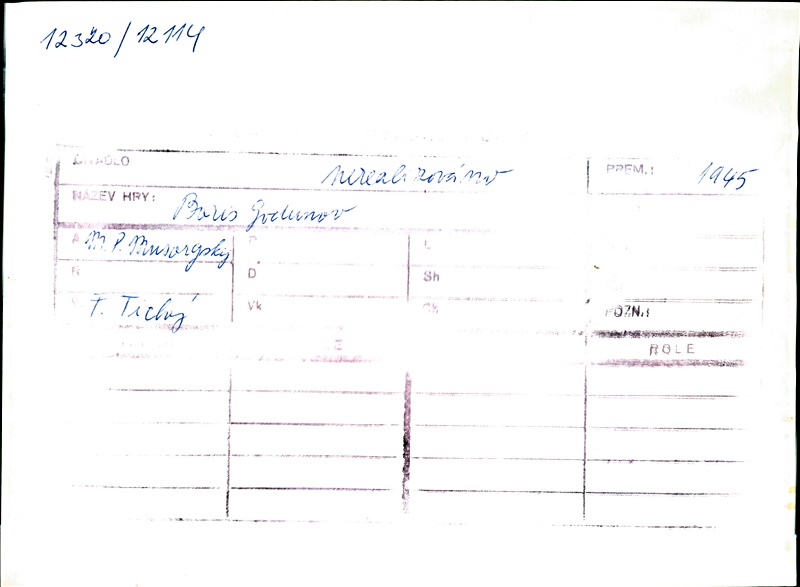 12320/12114
DIVADLO nerealizováno PREM.: 1945
NÁZEV HRY: Boris Godunov
A M. P. Musorgský P L
R D Sh
F. Tichý Vk Ch POZN.:
ROLE